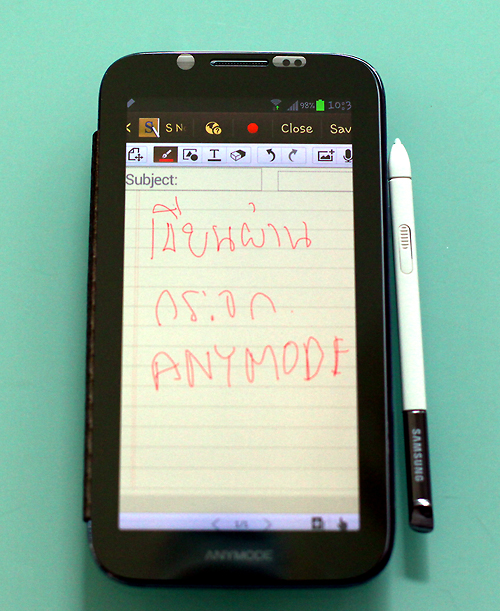 98% 10:3
S N Close Sav
T
Subject:
เขียนผ่าน
กระจก
ANYMODE
1/1
ANYMODE
SAMSUNG